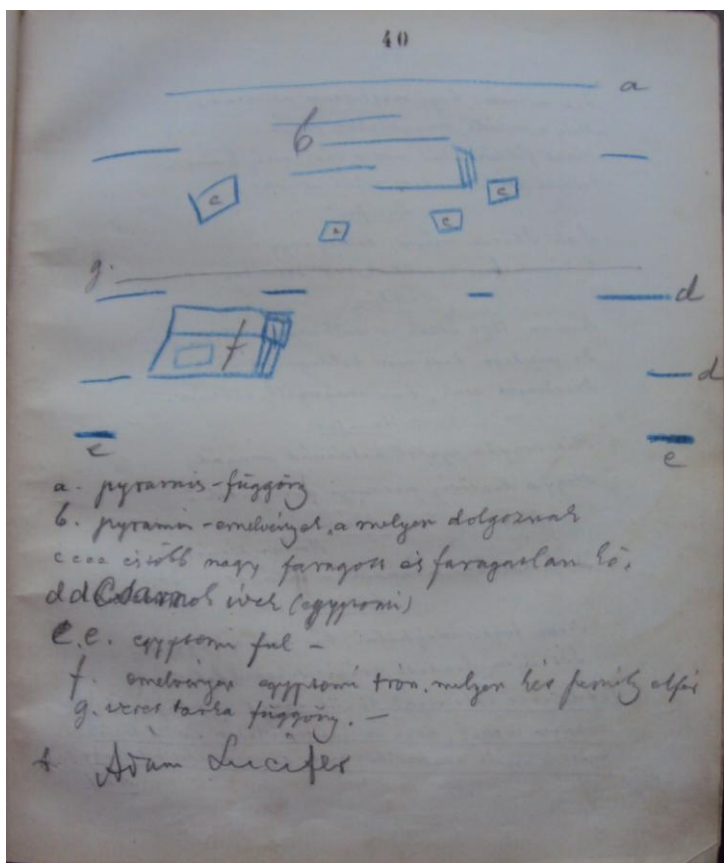 40
a
b
c c
c c
g.
d
f
d
e e
a. pyramis-függöny
b. pyramis-emelvények, a melyen dolgoznak
c c c c több nagy faragott és faragatlan kő.
d d Csarnok ívek (egyptomi)
e.e. egyptomi fal –
f. emelvényes egyptomi trón, melyen két személy elfér
g. veres tarka függöny. –
Ádám Lucifer